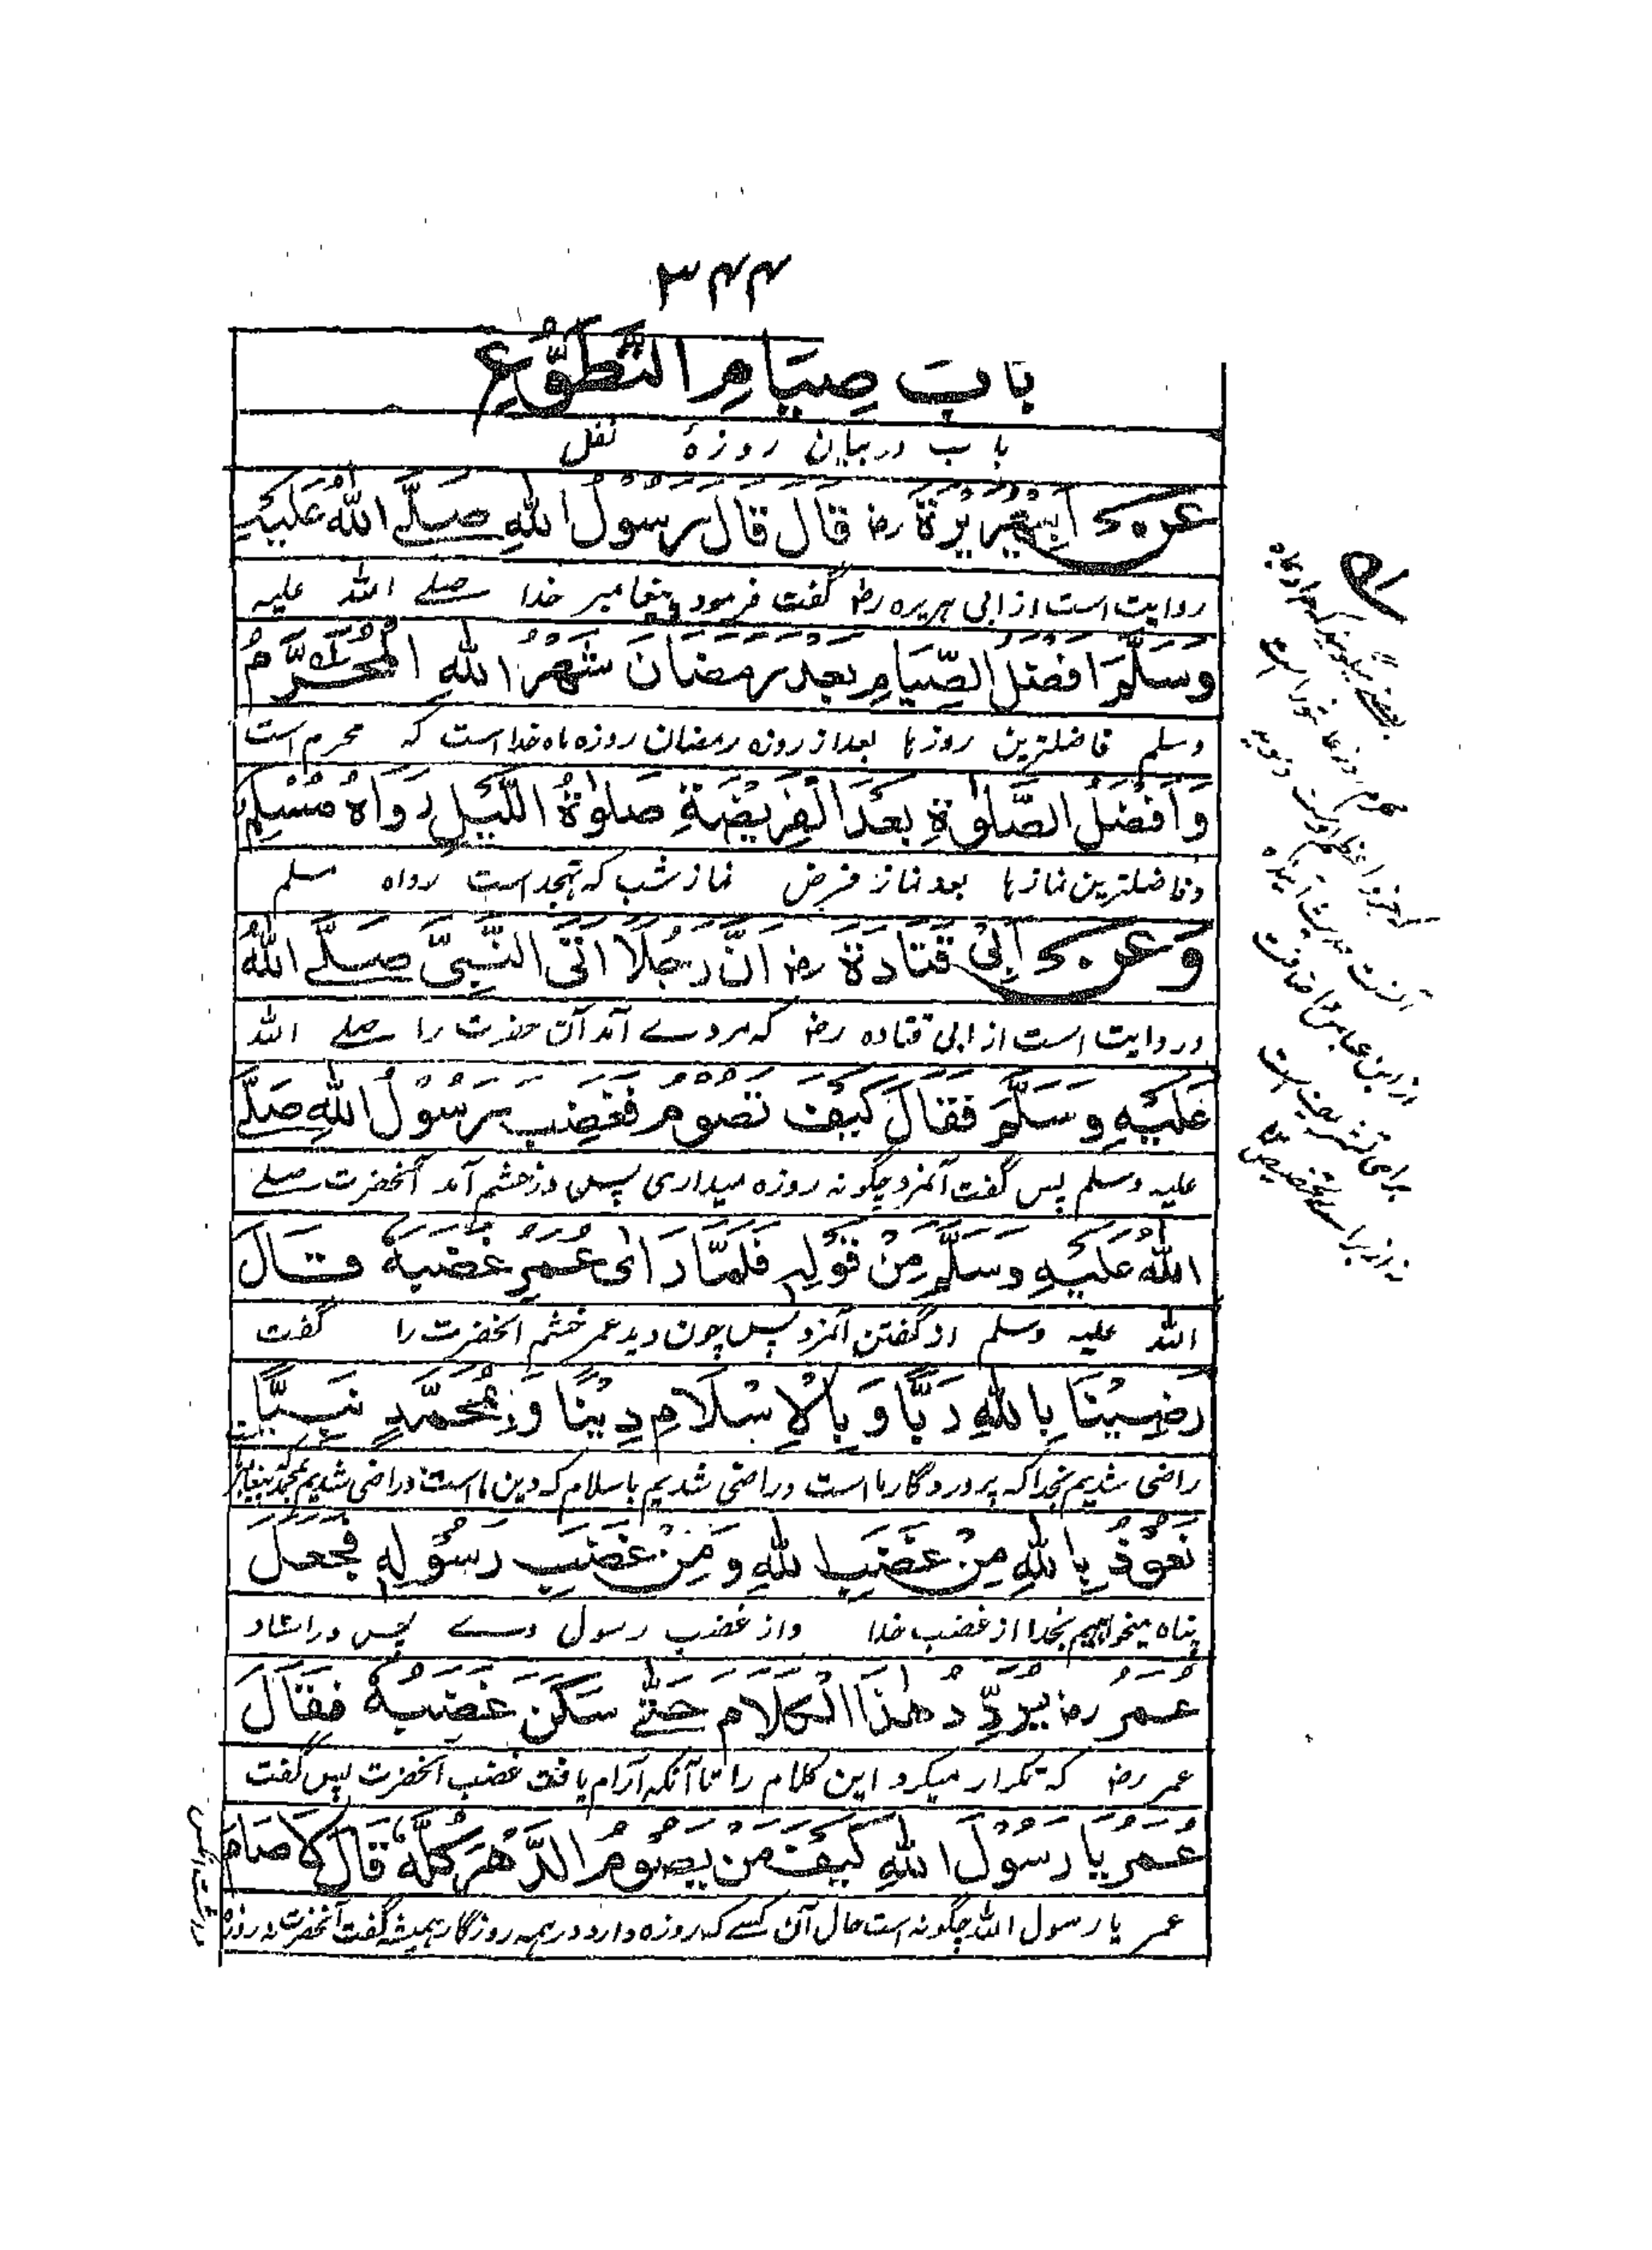 ۳۴۴
بَابُ صِيَامِ التَّطَوُّعِ
باب در بیان روزهٔ نفل
عَنْ اَبِيْ هُرَيْرَةَ رض قَالَ قَالَ رَسُوْلُ اللهِ صَلَّے اللهُ عَلَيْهِ
روایت است از ابی هریره رض گفت فرمود پیغامبر خدا صلے الله علیه
وَسَلَّمَ اَفْضَلُ الصِّيَامِ بَعْدَ رَمَضَانَ شَهْرُ اللهِ الْمُحَرَّمُ
وسلم فاضلترین روزها بعد از روزه رمضان روزه ماه خدا است که محرم است
وَاَفْضَلُ الصَّلٰوةِ بَعْدَ الْفَرِيْضَةِ صَلٰوةُ اللَّيْلِ رَوَاهُ مُسْلِمٌ
وفاضلترین نمازها بعد نماز فرض نماز شب که تهجد است رواه مسلم
وَعَنْ اَبِيْ قَتَادَةَ رض اَنَّ رَجُلًا اَتَى النَّبِيَّ صَلَّے اللهُ
و روایت است از ابی قتاده رض که مردے آمد آن حضرت را صلے الله
عَلَيْهِ وَسَلَّمَ فَقَالَ كَيْفَ تَصُوْمُ فَغَضِبَ رَسُوْلُ اللهِ صَلَّے
علیه وسلم پس گفت آنمرد چگونه روزه میداری پس در خشم آمد آنحضرت صلے
اللهُ عَلَيْهِ وَسَلَّمَ مِنْ قَوْلِهٖ فَلَمَّا رَاٰى عُمَرُ غَضَبَهٗ قَالَ
الله علیه وسلم از گفتن آنمرد پس چون دید عمر خشم آنحضرت را گفت
رَضِيْنَا بِاللهِ رَبًّا وَبِالْاِسْلَامِ دِيْنًا وَبِمُحَمَّدٍ نَبِيًّا
راضی شدیم بخدا که پروردگار ما است و راضی شدیم باسلام که دین ما است و راضی شدیم بمحمد که پیغامبر
نَعُوْذُ بِاللهِ مِنْ غَضَبِ اللهِ وَمِنْ غَضَبِ رَسُوْلِهٖ فَجَعَلَ
پناه میخواهیم بخدا از غضب خدا واز غضب رسول وے پس در ایستاد
عُمَرُ رض يُرَدِّدُ هٰذَا الْكَلَامَ حَتّٰے سَكَنَ غَضَبُهٗ فَقَالَ
عمر رض که تکرار میکرد این کلام را تا آنکه آرام یافت غضب آنحضرت پس گفت
عُمَرُ يَا رَسُوْلَ اللهِ كَيْفَ مَنْ يَصُوْمُ الدَّهْرَ كُلَّهٗ قَالَ لَا صَامَ
عمر یا رسول الله چگونه است حال آن کسے که روزه دارد در همه روزگار همیشه گفت آنحضرت نه روزه